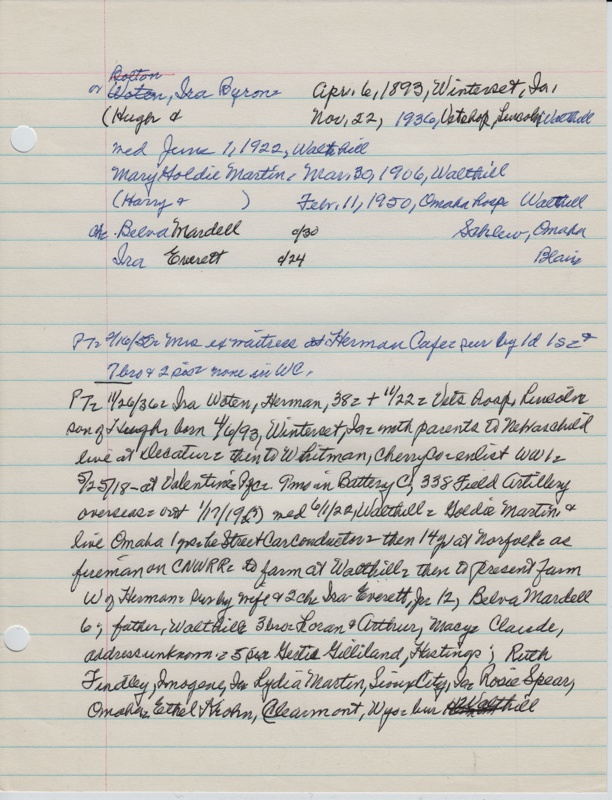 Bolton
or Woten, Ira Byron = Apr. 6, 1893, Winterset, Ia.
(Hugh & Nov. 22, 1936, Vetshop, Lincoln Walthill
med June 1, 1922, Walthill
Mary Goldie Martin = Mar. 30, 1906, Walthill
(Harry & ) Febr. 11, 1950, Omaha hosp = Walthill
ch: Belva Mardell c/30 Omaha
Ira Everett c/24 Blair
PT = Mrs ex waitress at Herman Cafe = sur by 1d 1s =
7 bro & 2 sis = none in WC.
PT = 11/26/36 = Ira Woten, Herman, 38 = + 11/22 = Vets hosp, Lincoln
son of Hugh, born 4/6/93, Winterset, Ia = with parents to Neb as child
live at Decatur = then to Whitman, Cherry Co = enlist WW1 =
5/25/18 - at Valentine = Pfc = 9 mos in Battery C, 338 Field Artillery
overseas = out 1/17/19(?) med 6/1/22, Walthill = Goldie Martin, &
live Omaha 1 yr = he Street Car conductor = then 14 yr at Norfolk = as
fireman on CNWRR = to farm at Walthill = then to present farm
W of Herman = sur by wife & 2 ch Ira Everett, Jr 12, Belva Mardell
6; father, Walthill = 3 bro = Loran & Arthur, Macy = Claude,
address unknown = 5 sis Gertie Gilliland, Hastings; Ruth
Findley, Imogene, Ia = Lydia Martin, Sioux City, Ia = Rosie Spear,
Omaha = Ethel Krohn, Clearmont, Wyo = bur Walthill